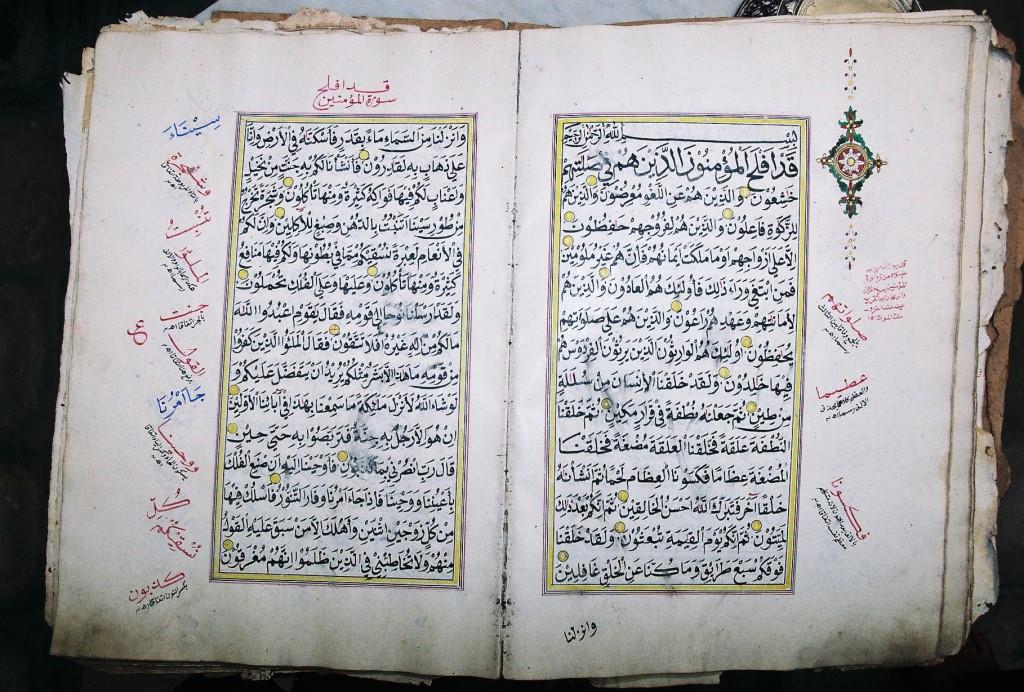 بسم الله الرحمن الرحيم
قد افلح المؤمنون الذين هم في صلاتهم
خشعون والذين هم عن اللغو معرضون والذين هم
للزكوة فاعلون والذين هم لفروجهم حفظون
الا على ازواجهم او ما ملكت ايمانهم فانهم غير ملومين
فمن ابتغى وراء ذلك فاولئك هم العادون والذين هم
لاماناتهم وعهدهم راعون والذين هم على صلواتهم
يحفظون اولئك هم الوارثون الذين يرثون الفردوس هم
فيها خلدون ولقد خلقنا الانسان من سللة
من طين ثم جعلنه نطفة في قرار مكين ثم خلقنا
النطفة علقة فخلقنا العلقة مضغة فخلقنا
المضغة عظاما فكسونا العظام لحما ثم انشأنه
خلقا آخر فتبرك الله احسن الخالقين ثم انكم بعد ذلك
لميتون ثم انكم يوم القيمة تبعثون ولقد خلقنا
فوقكم سبع طرايق وما كنا عن الخلق غافلين
وانزلنا
صلواتهم
عظيما
فكسونا
قد افلح
سورة المؤمنين
وانزلنا من السماء ماء بقدر فاسكنه في الارض وانا
على ذهاب به لقدرون فانشأنا لكم به جنت من نخيل
واعناب لكم فيها فواكه كثيرة ومنها تأكلون وشجرة تخرج
من طور سيناء تنبت بالدهن وصبغ للاكلين وان لكم
في الانعام لعبرة نسقيكم مما في بطونها ولكم فيها منافع
كثيرة ومنها تأكلون وعليها وعلى الفلك تحملون
ولقد ارسلنا نوحا الى قومه فقال يقوم اعبدوا الله
مالكم من اله غيره افلا تتقون فقال الملؤا الذين كفروا
من قومه ما هذا الا بشر مثلكم يريد ان يتفضل عليكم و
لو شاء الله لانزل ملئكة ما سمعنا بهذا في ابائنا الاولين
ان هو الا رجل به جنة فتربصوا به حتى حين
قال رب انصرني بما كذبون فاوحينا اليه ان اصنع الفلك
باعيننا ووحينا فاذا جاء امرنا وفار التنور فاسلك فيها
من كل زوجين اثنين واهلك الا من سبق عليه القول
منهم ولا تخاطبني في الذين ظلموا انهم مغرقون
سيناء
وشجرة
تنبت
الملؤا
جنت
القول
جا امرنا
ووحينا
كل
نسقيكم
كذبون